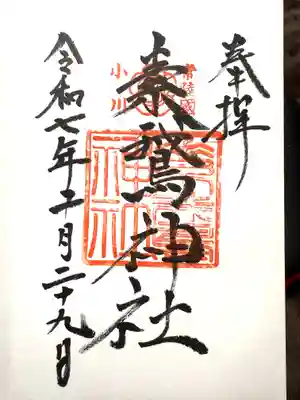 奉拝
常陸國
小川
素鵞神社
令和七年十一月二十九日